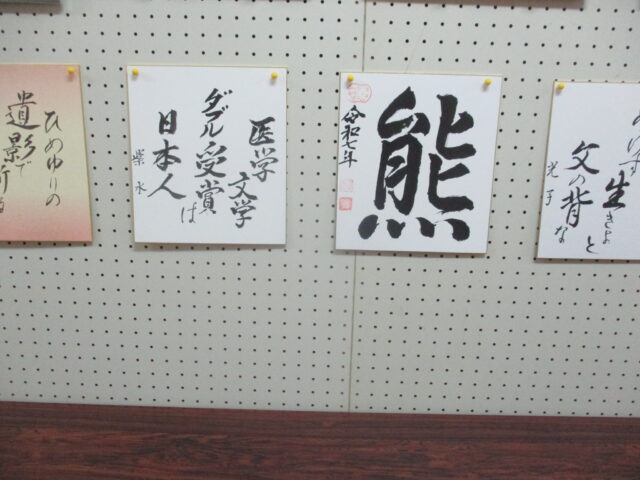 ひめゆりの
遺影で
医学
文学
ダブル受賞は
日本人
紫水
熊
令和七年
生きよと
父の背な
光子